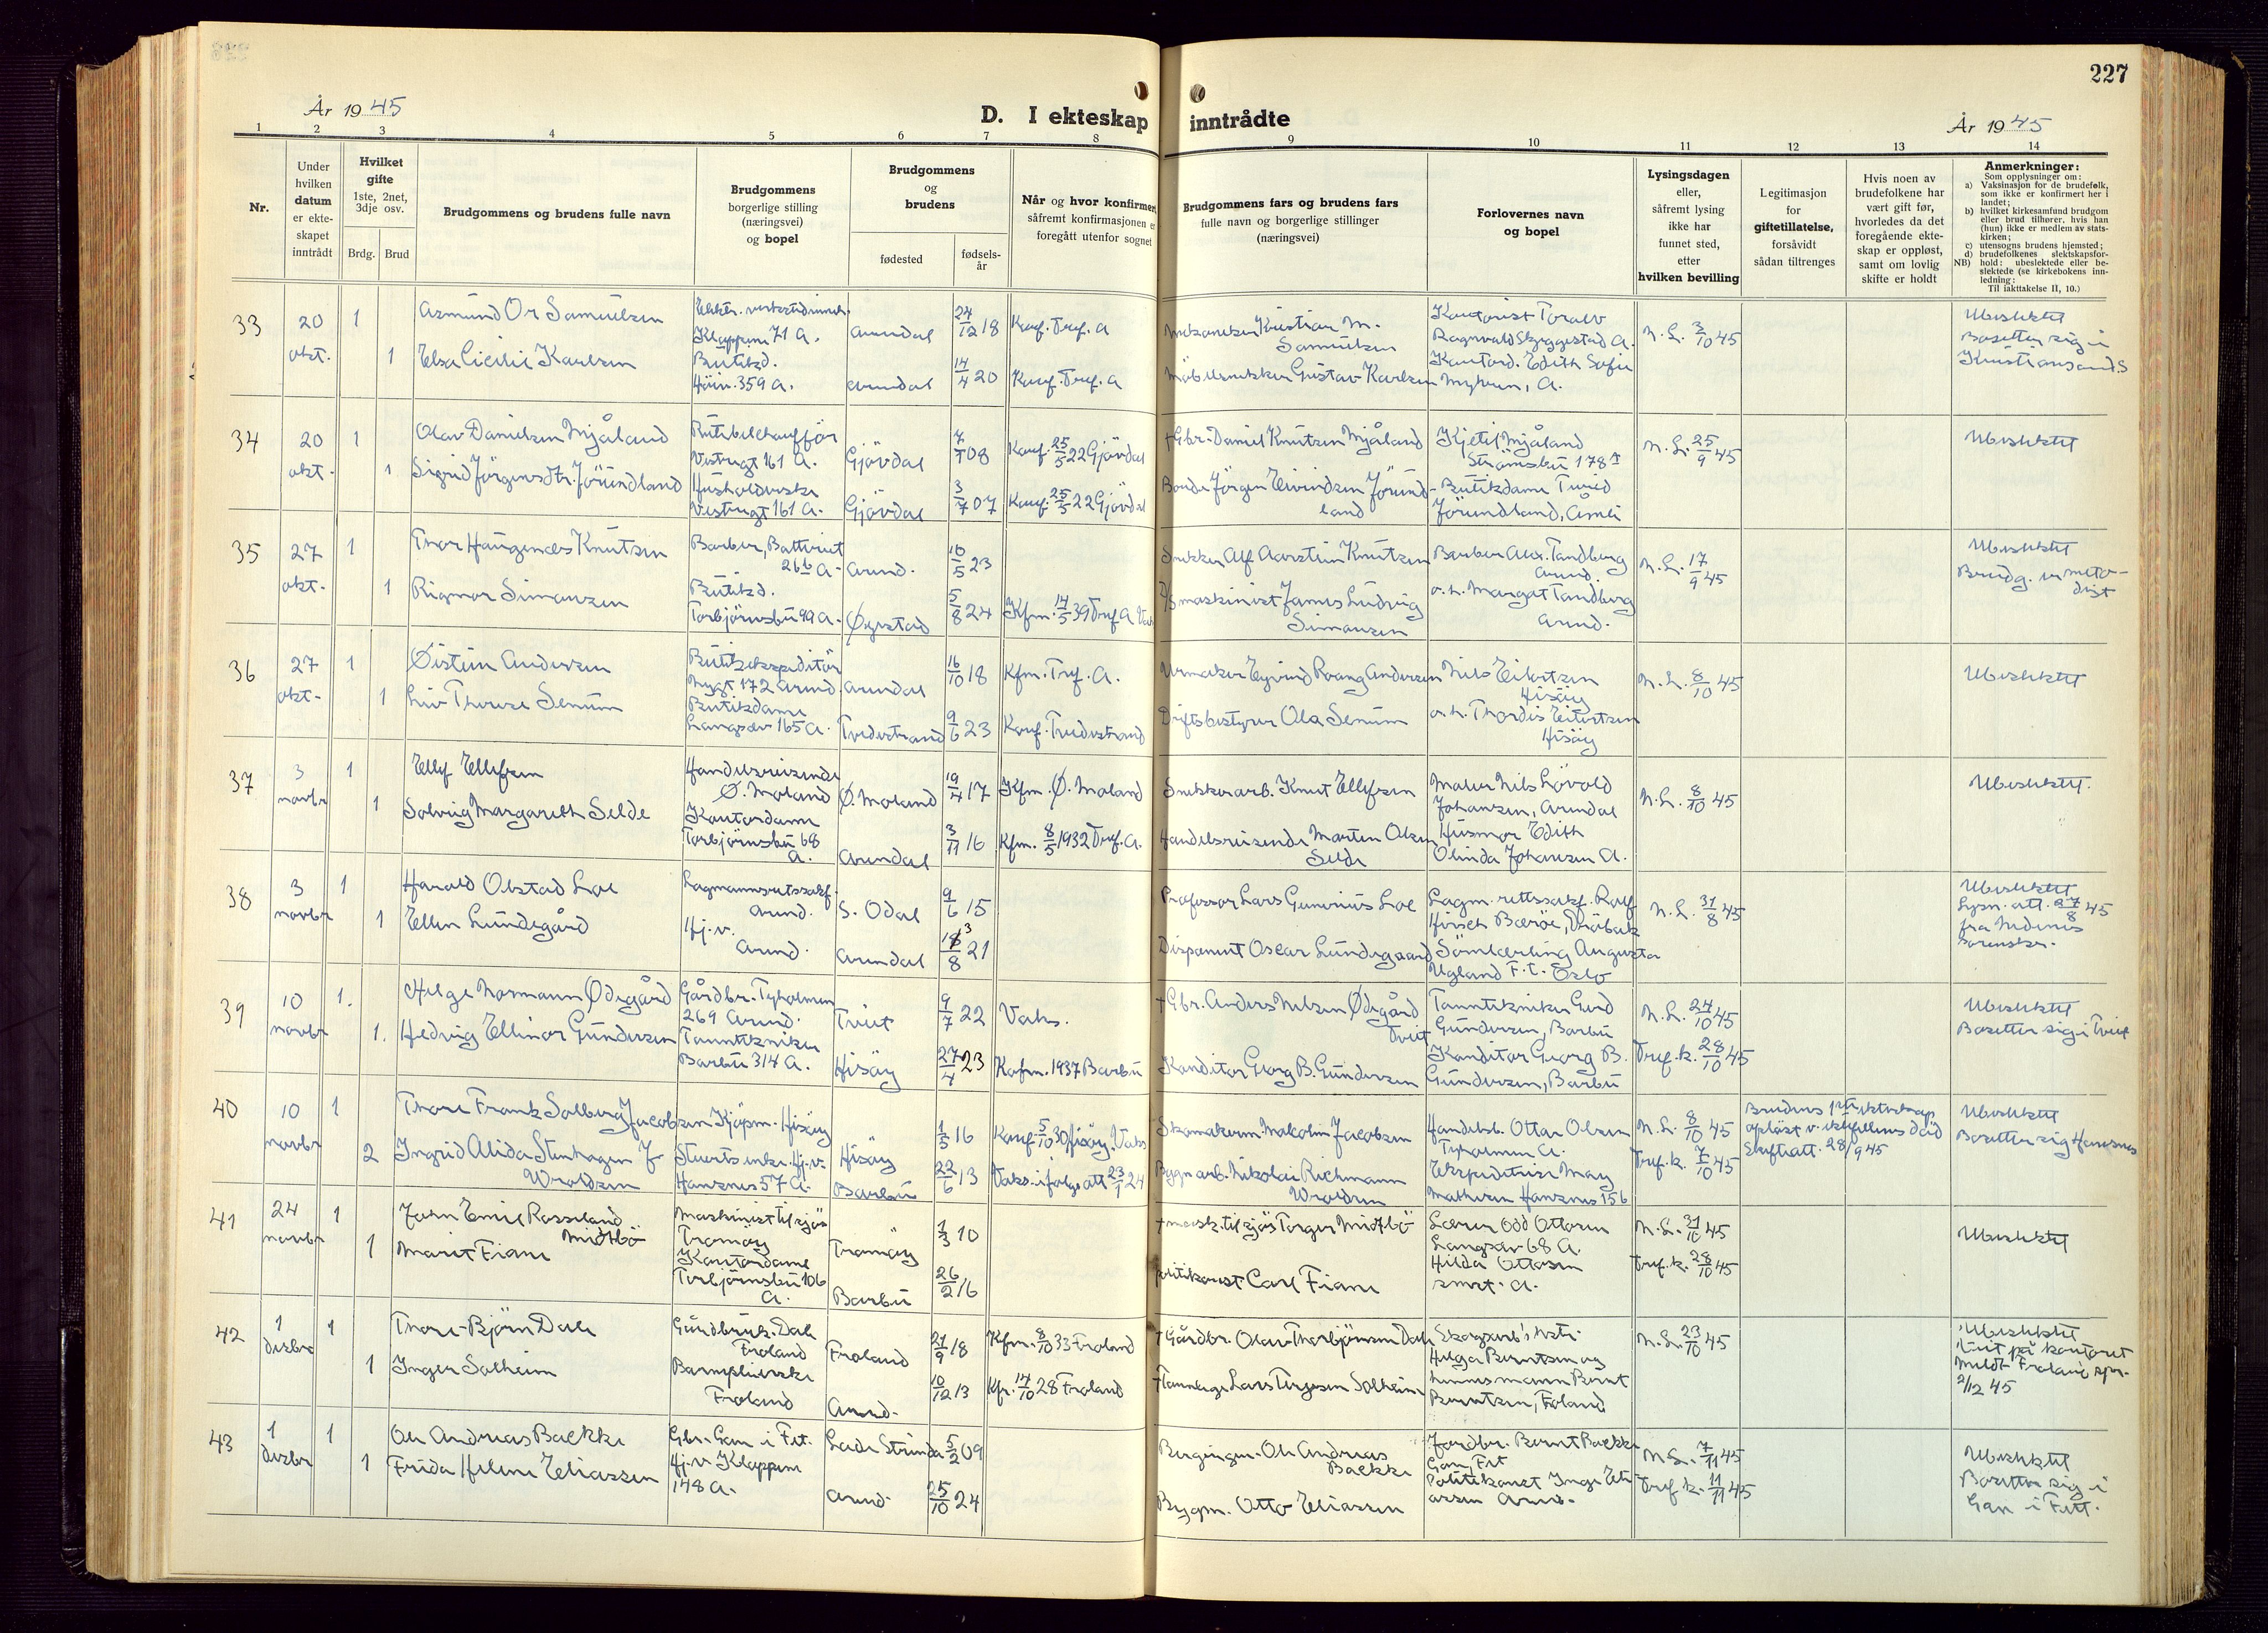 227
År 1945
D. I ekteskap inntrådte
År 1945
1 2 3 4 5 6 7 8 9 10 11 12 13 14
Nr.
Under hvilken datum er ekteskapet inntrådt
Hvilket gifte 1ste, 2net, 3dje osv.
Brdg. Brud
Brudgommens og brudens fulle navn
Brudgommens borgerlige stilling (næringsvei) og bopel
Brudgommens og brudens
fødested
fødsels-år
Når og hvor konfirmert
såfremt konfirmasjonen er
foregått utenfor sognet
Brudgommens fars og brudens fars
fulle navn og borgerlige stillinger
(næringsvei)
Forlovernes navn
og bopel
Lysingsdagen
eller,
såfremt lysing
ikke har
funnet sted,
etter
hvilken bevilling
Legitimasjon
for
giftetillatelse,
forsåvidt
sådan tiltrenges
Hvis noen av
brudefolkene har
vært gift før,
hvorledes da det
foregående ekte-
skap er oppløst,
samt om lovlig
skifte er holdt
Anmerkninger:
Som opplysninger om:
a) Vaksinasjon for de brudefolk,
som ikke er konfirmert her i
landet;
b) hvilket kirkesamfund brudgom
eller brud tilhører, hvis han
(hun) ikke er medlem av stats-
kirken;
c) utensogns brudens hjemsted;
d) brudefolkenes slektskapsfor-
NB) hold: ubeslektede eller be-
slektede (se kirkebokens inn-
ledning:
Til iakttakelse II, 10.)
33
20 okt.
1
Asmund Or Samuelsen
Klappene 71 A.
Arendal
24/12 18
Konf. Tref. A
Mekaniker Kristian M. Samuelsen
Kontorist Toralv
Ragnvald Skyggestad A.
N. L. 3/10 45
Ubeslektet
Bosetter sig i
Kristiansand S
1
Elsa Cicilie Karlsen
Butikkd.
Høiv. 359 A.
Arendal
14/4 20
Konf. Tref. A
Møbelsnekker Gustav Karlsen
Kontord. Edith Sofie
Myhren, A.
34
20 okt.
1
Olav Danielsen Mjåland
Rutebilchauffør
Vestregt 161 A.
Gjøvdal
7/1 08
Konf. 25/5 22 Gjøvdal
† Gbr. Daniel Knutsen Mjåland
Kjetil Mjåland
Strømsbu 178 A
N. L. 25/9 45
Ubeslektet
1
Sigrid Jørgensdtr. Jørundland
Husholderske
Vestregt 161 A.
Gjøvdal
3/7 07
Konf. 25/5 22 Gjøvdal
Bonde Jørgen Eivindsen Jørund-
land
Butikkdame Turid
Jørundland, Åmli
35
27 okt.
1
Thor Haugenæs Knutsen
Barber, Batteriet
266 A.
Arend.
10/5 23
Snekker Alf Aarstein Knutsen
Barber Alex. Tandberg
Arend.
N. L. 17/9 45
Ubeslektet
Brudg. er meto-
dist
1
Rigmor Simonsen
Butikkd.
Torbjørnsbu 99 A.
Øyestad
5/8 24
Kfm. 14/5 39 Tref. A Vaks
maskinist James Ludvig
Simonsen
o.h. Margot Tandberg
Arend.
36
27 okt.
1
Øistein Andersen
Butikkekspeditør
Nygt 172 Arend.
Arendal
16/10 18
Kfm. Tref. A.
Urmaker Eyvind Roang Andersen
Nils Eilertsen
Hisøy
N. L. 8/10 45
Ubeslektet
1
Liv Therese Senum
Butikkdame
Langsæv 165 A.
Tvedestrand
9/6 23
Konf. Tvedestrand
Driftsbestyrer Ola Senum
o.h. Thordis Eilertsen
Hisøy
37
3 novbr
1
Ellef Ellefsen
Handelsreisende
Ø. Moland
Ø. Moland
19/4 17
Kfm. Ø. Moland
Snekkerarb. Knut Ellefsen
Maler Nils Løvold
Johansen, Arendal
N. L. 8/10 45
Ubeslektet.
1
Solveig Margareth Selde
Kontordame
Torbjørnsbu 68
A.
Arendal
3/11 16
Kfm. 8/5 1932 Tref. A.
Handelsreisende Morten Olsen
Selde
Husmor Edith
Olinda Johansen A.
38
3 novbr
1
Harald Olstad Loe
Lagmannsrettssakf.
Arend.
S. Odal
9/6 15
Professor Lars Gunerius Loe
Lagm. rettssakf. Rolf
Hirsch Bærøe, Drøbak
N. L. 31/8 45
Ubeslektet
Lysn. att. 27/8 45
fra Nedenes
Sorenskr.
1
Ellen Lundegård
Hj. v.
Arend.
Arendal
13/8 21
Disponent Oscar Lundegaard
Sømlærling Augusta
Ugland F. t. Oslo
39
10 novbr
1.
Helge Normann Ødegård
Gårdbr. Tyholmen
269 Arend.
Tveit
9/7 22
Vaks.
† Gbr. Anders Nilsen Ødegård
Tveit
Tanntekniker Gerd
Gundersen, Barbu
N. L. 24/10 45
Ubeslektet
Bosetter sig i Tveit
1.
Hedvig Ellinor Gundersen
Tanntekniker
Barbu 314 A.
Hisøy
27/4 23
Kofm. 1937 Barbu
Konditor Georg B. Gundersen
Konditor Georg B.
Gundersen, Barbu
Tref. k. 28/10 45
40
10 novbr
1
Thore Frank Solberg Jacobsen
Kjøpm. Hisøy
Hisøy
1/5 16
Konf. 5/10 30 Hisøy. Vaks
Skomakerm. Malcolm Jacobsen
Handelsb. Ottar Olsen
Tyholmen A.
N. L. 8/10 45
Brudens 1ste ekteskap
opløst v. ektefellens død
Skifteatt. 28/9 45
Ubeslektet
Bosetter sig Havsnes
2
Ingrid Alida Stenhagen f.
Wroldsen
Stuerts enke. Hj. v.
Havsnes 57 A.
Barbu
22/6 13
Vaks. ifølge att 23/1 24
Bygn.arb. Nikolai Richmann
Wroldsen
Ekspeditrise May
Mathisen Havsnes 156
Tref. k. 7/10 45
41
24 novbr
1
John Emil Rosseland
Midtbø
Maskinist til sjøs
Tromøy
Tromøy
1/3 10
† mask. til sjøs Torger Midtbø
Lærer Odd Ottosen
Langsæv 68 A.
N. L. 31/10 45
Ubeslektet
1
Marit Fiane
Kontordame
Torbjørnsbu 106
A.
Barbu
26/2 16
Politikonst Carl Fiane
Hilda Ottosen
smst. A.
Tref. k. 28/10 45
42
1 desbr
1
Thore Bjørn Dale
Gårdbruk. Dale
Froland
Froland
21/9 18
Kfm. 8/10 33 Froland
† Gårdbr. Olav Thorbjørnsen Dale
Helga Berntsen og
N. L. 23/10 45
Ubeslektet
Viet på kontoret
Meldt Froland spr.
2/12 45
1
Inger Solheim
Barnepleierske
Froland
Arend.
10/12 13
Kfr. 14/10 28 Froland
† Tannlege Lars Terjesen Solheim
hennes mann Bernt
Berntsen, Froland
43
1 desbr
1
Ole Andreas Bakke
Gbr. Gan i Fet.
Lade Strinda
5/2 09
Bergingen. Ole Andreas
Bakke
Jordbr. Bernt Bakke
Gan, Fet
N. L. 7/11 45
Ubeslektet
Bosetter sig i
Gan i Fett.
1
Frida Helene Eliassen
Hj. v. Klappene
148 A.
Arend.
25/10 24
Bygm. Otto Eliassen
Politikonst Inge Eli
assen Arend.
Tref. k. 11/11 45